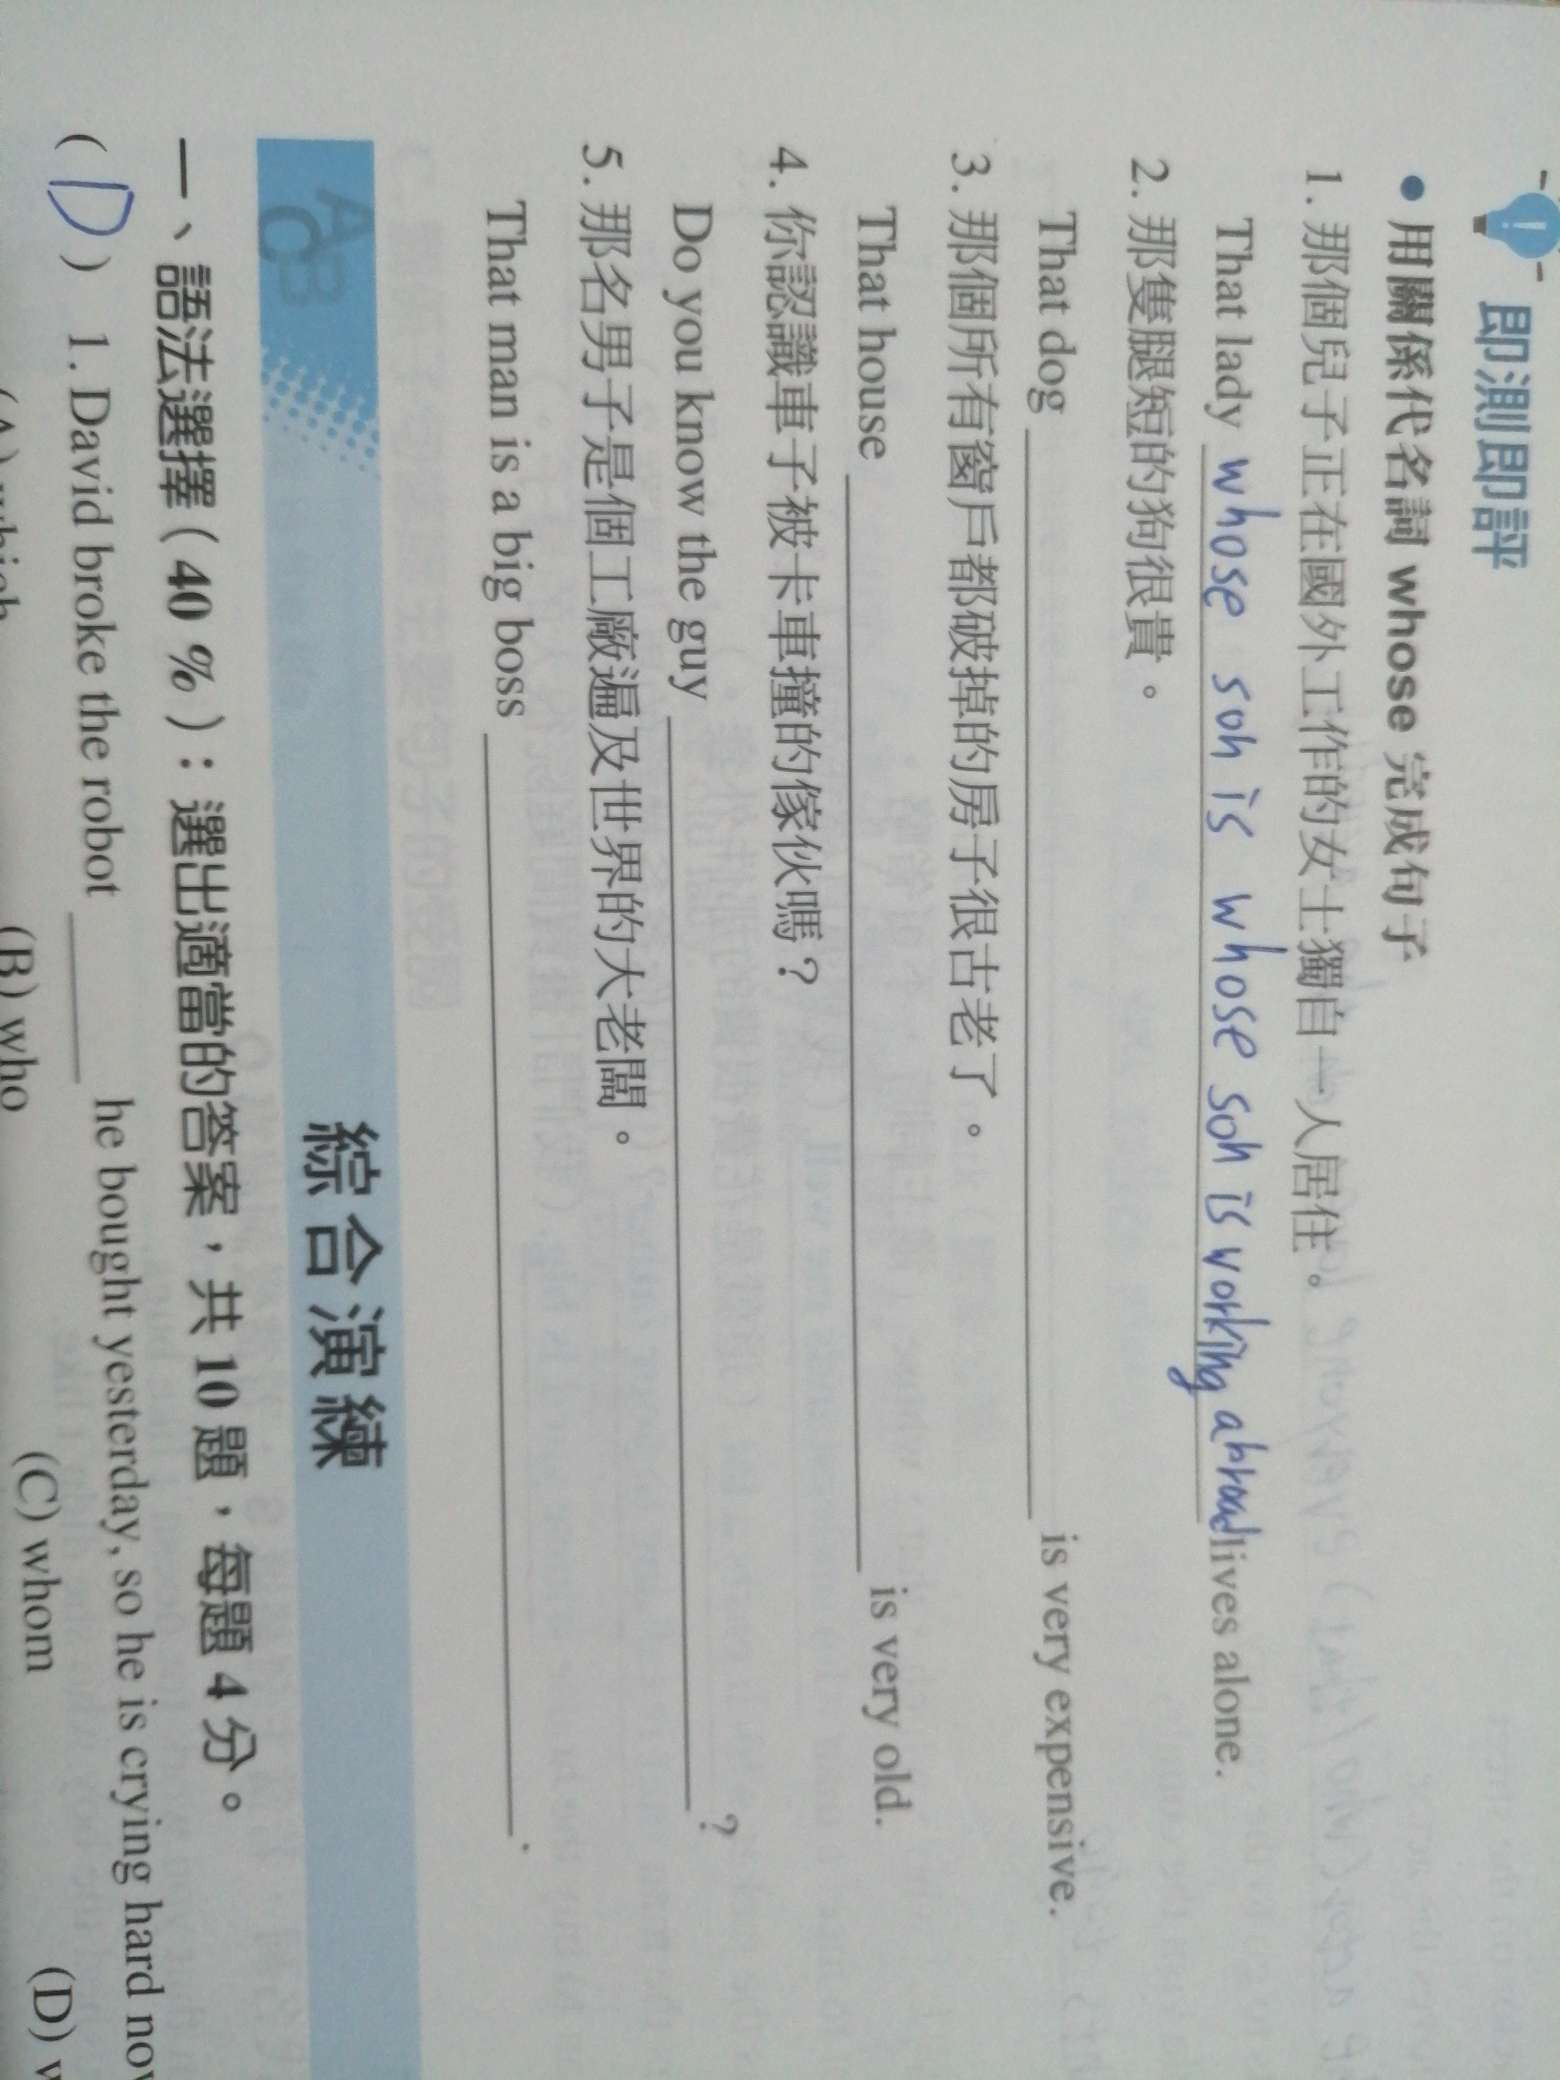 即測即評
● 用關係代名詞 whose 完成句子
1. 那個兒子正在國外工作的女士獨自一人居住。
That lady whose son is whose son is working abroad lives alone.
2. 那隻腿短的狗很貴。
That dog ________ is very expensive.
3. 那個所有窗戶都破掉的房子很古老了。
That house ________ is very old.
4. 你認識車子被卡車撞的傢伙嗎？
Do you know the guy ________ ?
5. 那名男子是個工廠遍及世界的大老闆。
That man is a big boss ________ .
ABC
綜合演練
一、語法選擇（40 %）：選出適當的答案，共 10 題，每題 4 分。
( D ) 1. David broke the robot ________ he bought yesterday, so he is crying hard now
(A) which (B) who (C) whom (D)